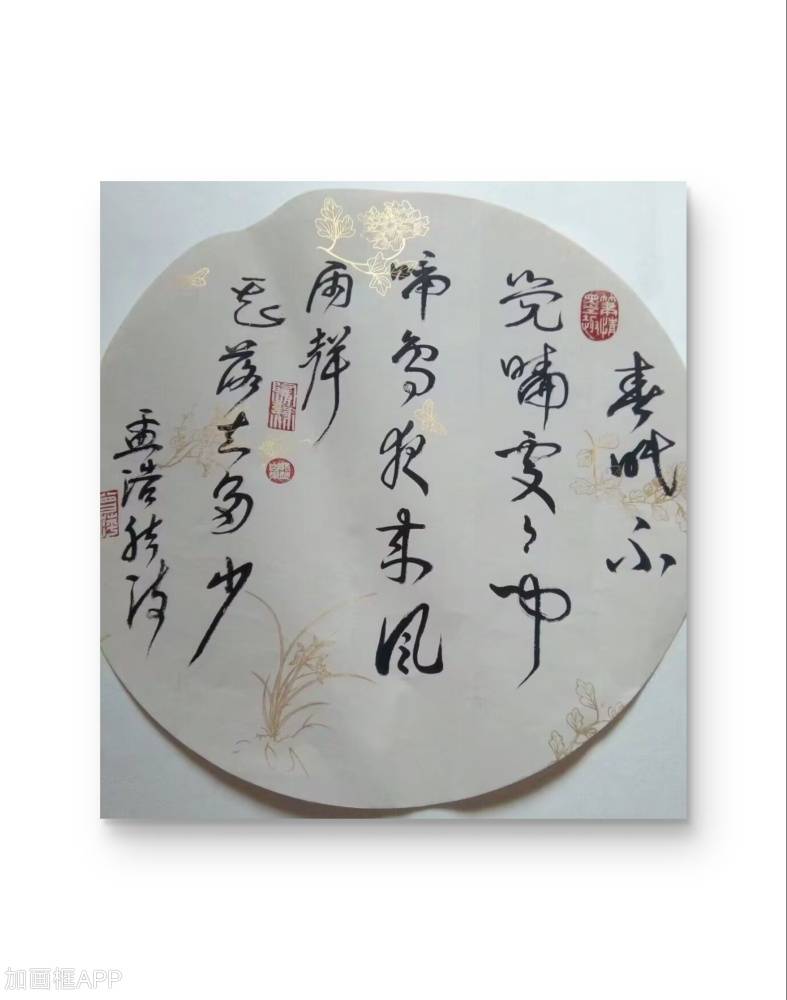 春眠不
觉曉處々闻
啼鸟夜来风
雨聲
花落知多少
孟浩然诗
加画框APP